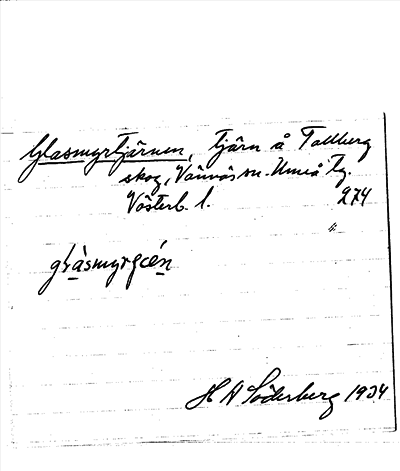 Glasmyrtjärnen, tjärn å Tallberg
skog, Vännäs sn. Umeå tg.
Västerb. l. 274
glàsmyrɕén
H A Söderberg 1934